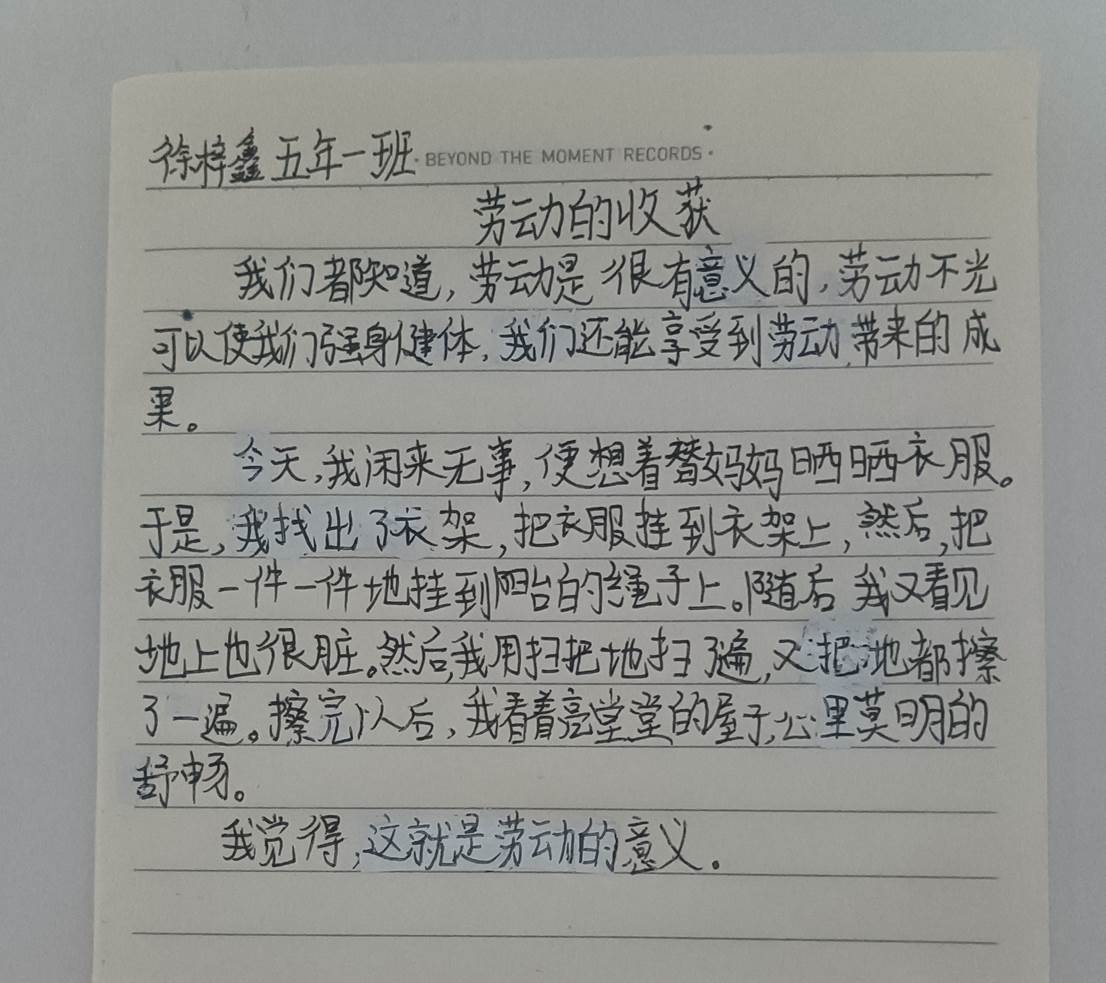 徐梓鑫 五年一班·BEYOND THE MOMENT RECORDS·
劳动的收获
我们都知道,劳动是很有意义的,劳动不光
可以使我们强身健体,我们还能享受到劳动带来的成
果。
今天,我闲来无事,便想着替妈妈晒晒衣服。
于是,我找出了衣架,把衣服挂到衣架上,然后,把
衣服一件一件地挂到阳台的绳子上。随后我又看见
地上也很脏。然后,我用扫把地扫了遍,又把地都擦
了一遍。擦完以后,我看着亮堂堂的屋子,心里莫明的
舒畅。
我觉得,这就是劳动的意义。